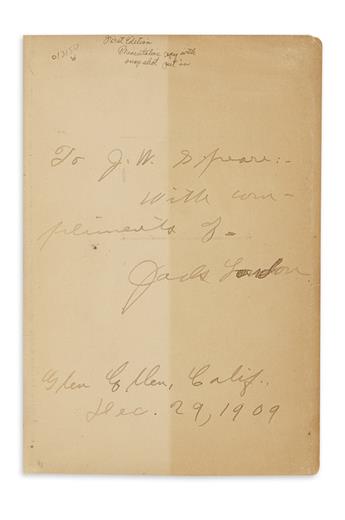 First Edition
Presentation copy with
snapshot put in
To J. W. Speare:-
With com-
pliments of-
Jack London
Glen Ellen, Calif.,
Dec. 29, 1909